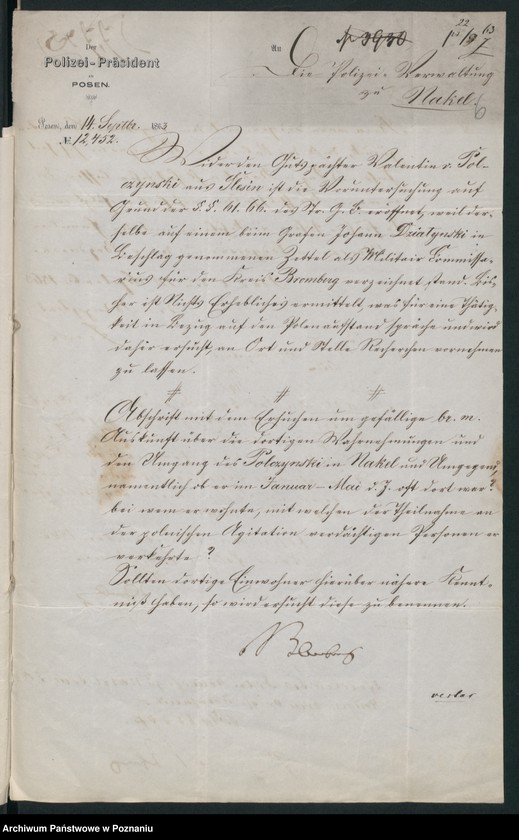 Der
Polizei-Präsident
in
POSEN.
An
C
№ 3930
pr 22/9 63
Die Polizei-Verwaltung
zu Nakel.
6
Posen, den 14. Septbr. 1863
№ 12,452.
Wider den Gutspächter Valentin v. Pol-
czynski aus Slesin ist die Voruntersuchung auf
Grund der §.§. 61. 66. des Str. G. B. eröffnet, weil der-
selbe auf einem beim Grafen Johann Dzialynski in
Beschlag genommenen Zettel als Militair Commissa-
rius für den Kreis Bromberg verzeichnet stand. Bis-
her ist Nichts Erhebliches ermittelt, was für eine Thätig-
keit in Bezug auf den Polenaufstand spräche und wird
daher ersucht, an Ort und Stelle Recherchen vornehmen
zu lassen.
Abschrift mit dem Ersuchen um gefällige br. m.
Auskunft über die dortigen Wahrnehmungen und
den Umgang des Polczynski in Nakel und Umgegend,
namentlich ob er im Januar - Mai d. J. oft dort war?
bei wem er wohnte, mit welchen der Theilnahme an
der polnischen Agitation verdächtigen Personen er
verkehrte?
Sollten dortige Einwohner hierüber nähere Kennt-
niß haben, so wird ersucht diese zu benennen.
vertas
Archiwum Państwowe w Poznaniu